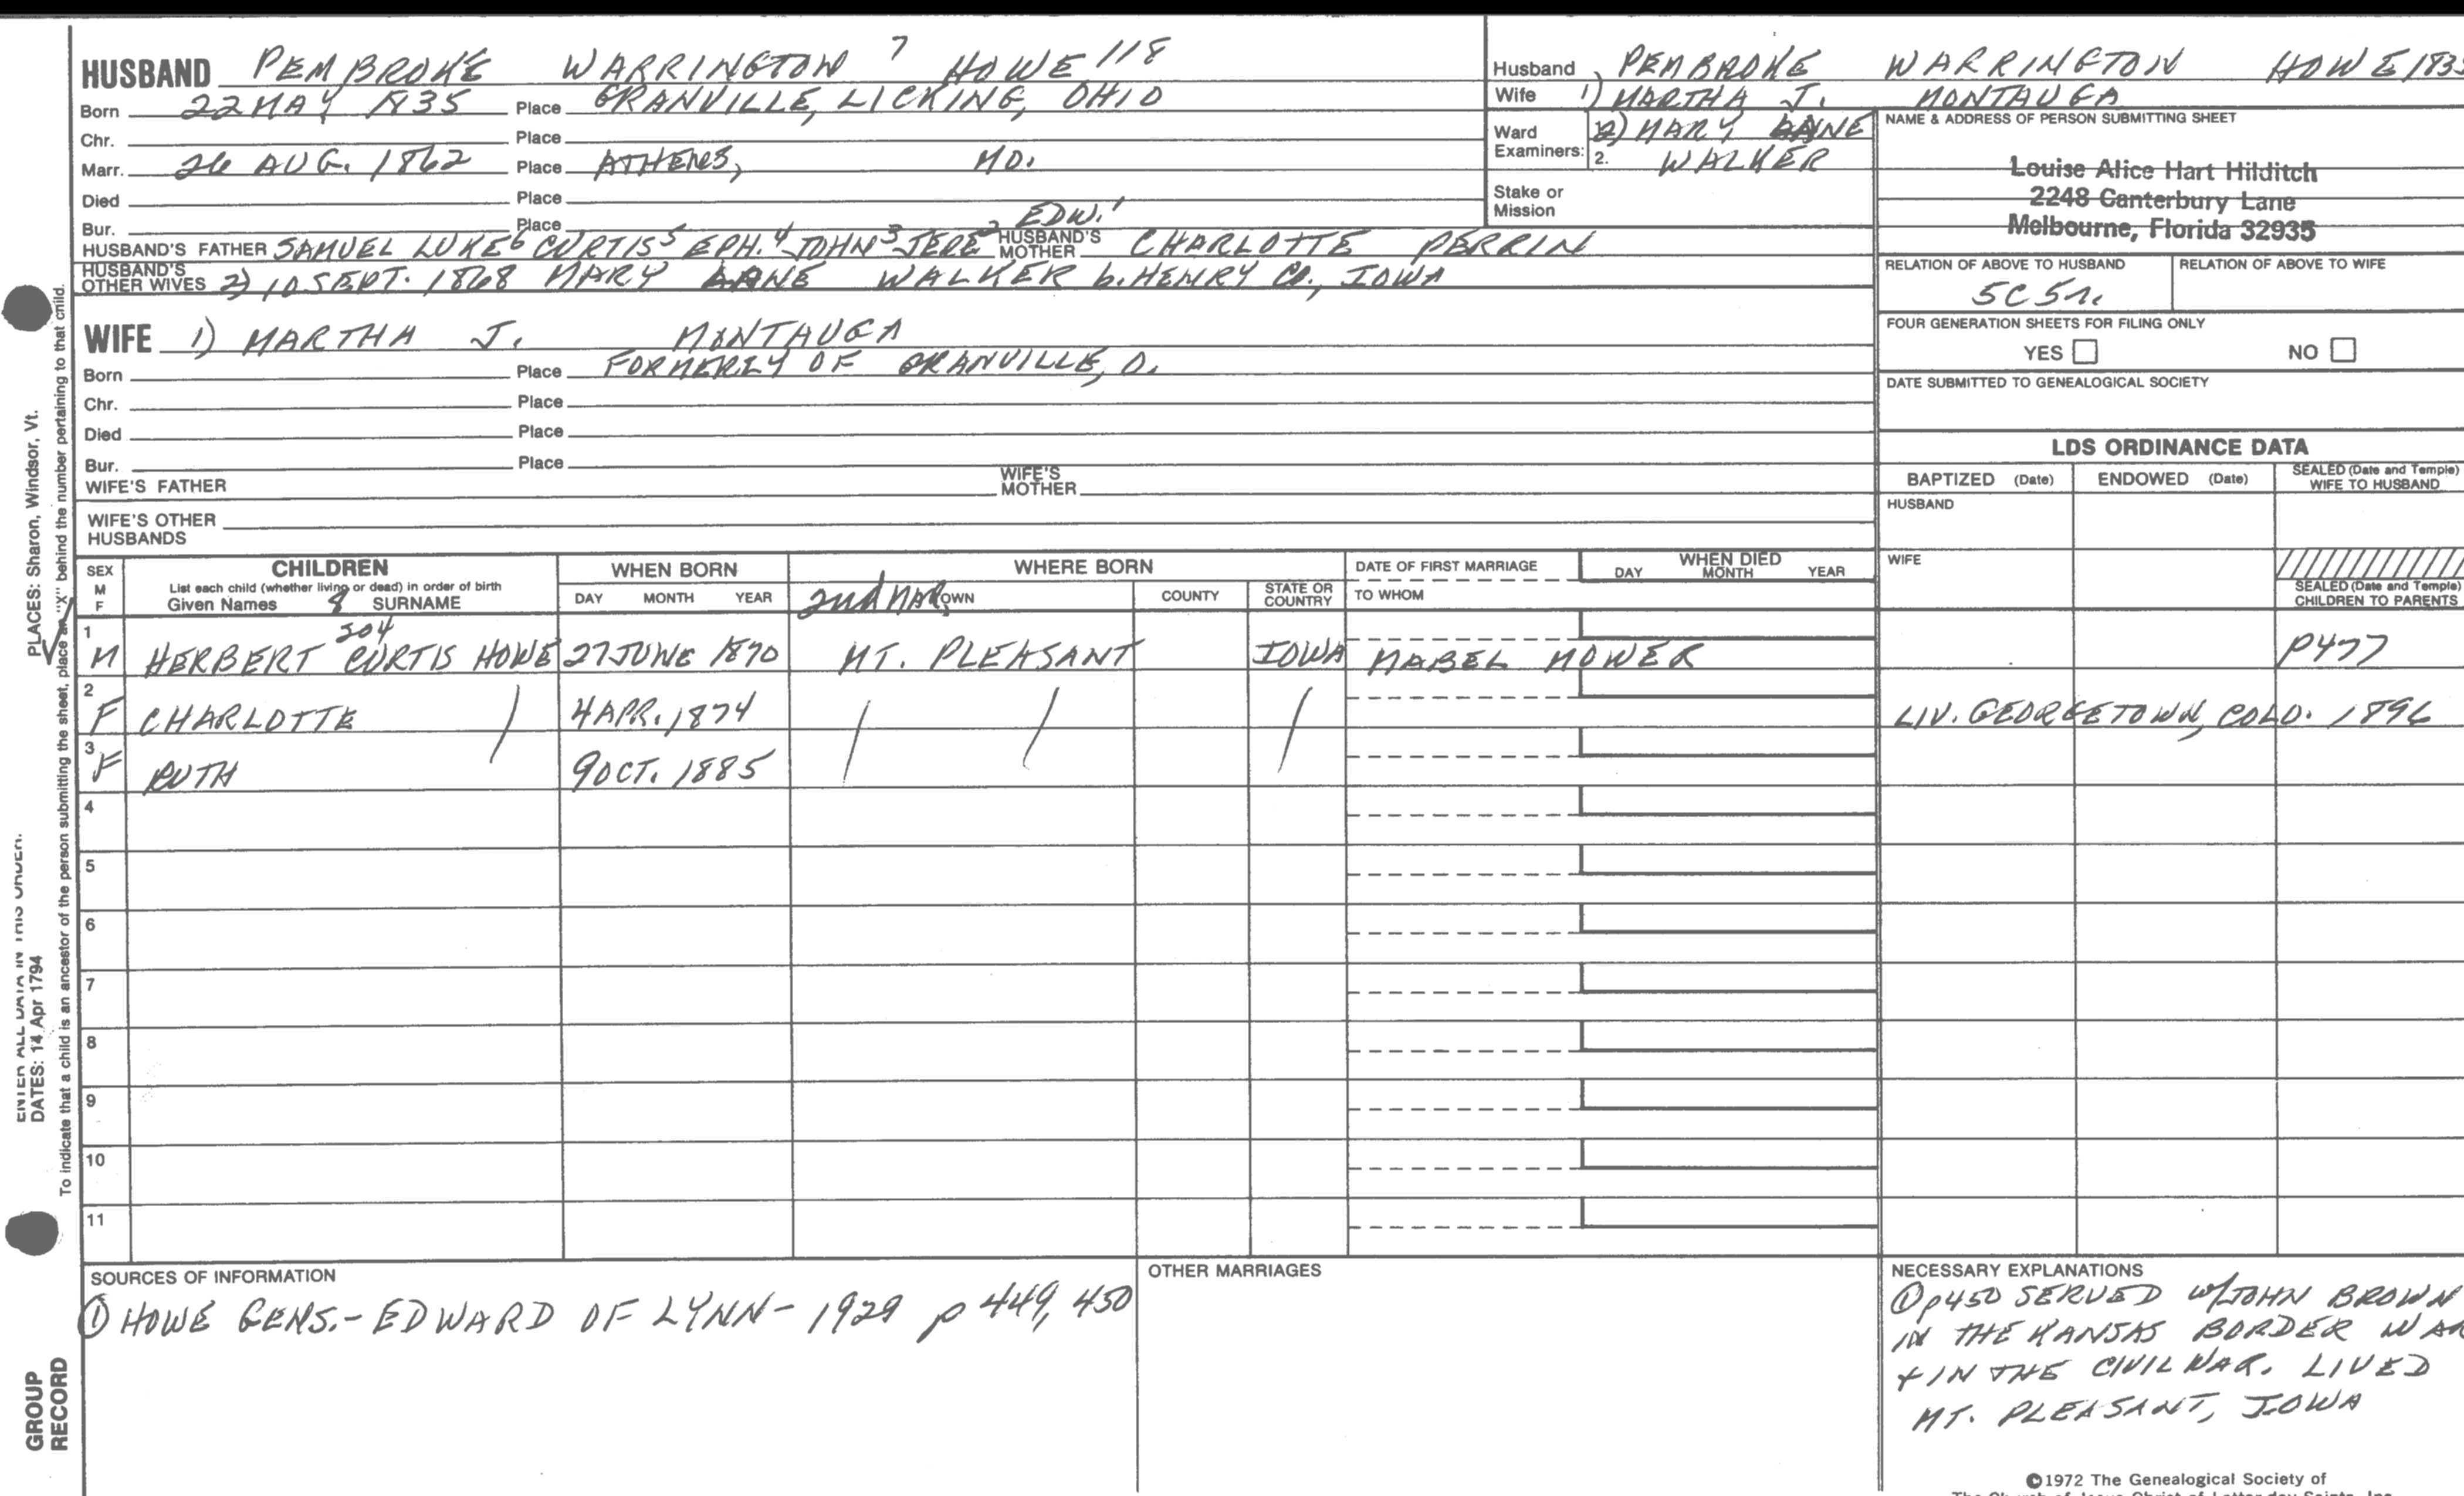 HUSBAND PEMBROKE WARRINGTON 7 HOWE 118
Born 22 MAY 1835 Place GRANVILLE, LICKING, OHIO
Chr. Place
Marr. 26 AUG. 1862 Place ATHENS, MO.
Died Place
Bur. Place
HUSBAND'S FATHER SAMUEL LUKE6 CURTIS5 EPH.4 JOHN3 JERE2 EDW.1 HUSBAND'S MOTHER CHARLOTTE PERRIN
HUSBAND'S OTHER WIVES 2) 10 SEPT. 1868 MARY ANNE WALKER b. HENRY CO., IOWA
WIFE 1) MARTHA J. MONTAUGA
Born Place FORMERLY OF GRANVILLE, O.
Chr. Place
Died Place
Bur. Place
WIFE'S FATHER WIFE'S MOTHER
WIFE'S OTHER HUSBANDS
Husband PEMBROKE WARRINGTON HOWE 1835
Wife 1) MARTHA J. MONTAUGA
Ward Examiners: 2) MARY ANNE
2. WALKER
Stake or Mission
NAME & ADDRESS OF PERSON SUBMITTING SHEET
Louise Alice Hart Hilditch
2248 Canterbury Lane
Melbourne, Florida 32935
RELATION OF ABOVE TO HUSBAND RELATION OF ABOVE TO WIFE
5C5r.
FOUR GENERATION SHEETS FOR FILING ONLY
YES NO
DATE SUBMITTED TO GENEALOGICAL SOCIETY
LDS ORDINANCE DATA
BAPTIZED (Date) ENDOWED (Date) SEALED (Date and Temple) WIFE TO HUSBAND
HUSBAND
WIFE
SEALED (Date and Temple) CHILDREN TO PARENTS
SEX M F CHILDREN WHEN BORN WHERE BORN DATE OF FIRST MARRIAGE WHEN DIED
List each child (whether living or dead) in order of birth
Given Names 8 SURNAME DAY MONTH YEAR 2nd MAR. TOWN COUNTY STATE OR COUNTRY TO WHOM DAY MONTH YEAR
1 M HERBERT 304 CURTIS HOWE 27 JUNE 1870 MT. PLEASANT IOWA MABEL MOWER P477
2 F CHARLOTTE 4 APR. 1874 LIV. GEORGETOWN, COLO. 1896
3 F RUTH 9 OCT. 1885
4
5
6
7
8
9
10
11
SOURCES OF INFORMATION
① HOWE GENS.- EDWARD OF LYNN- 1929 p 449, 450
OTHER MARRIAGES
NECESSARY EXPLANATIONS
① p450 SERVED W/JOHN BROWN
IN THE KANSAS BORDER WAR
+ IN THE CIVIL WAR. LIVED
MT. PLEASANT, IOWA
©1972 The Genealogical Society of
The Church of Jesus Christ of Latter-day Saints, Inc.
PLACES: Sharon, Windsor, Vt.
ENTER ALL DATA IN THIS ORDER:
DATES: 14 Apr 1794
To indicate that a child is an ancestor of the person submitting the sheet, place an "X" behind the number pertaining to that child.
GROUP
RECORD